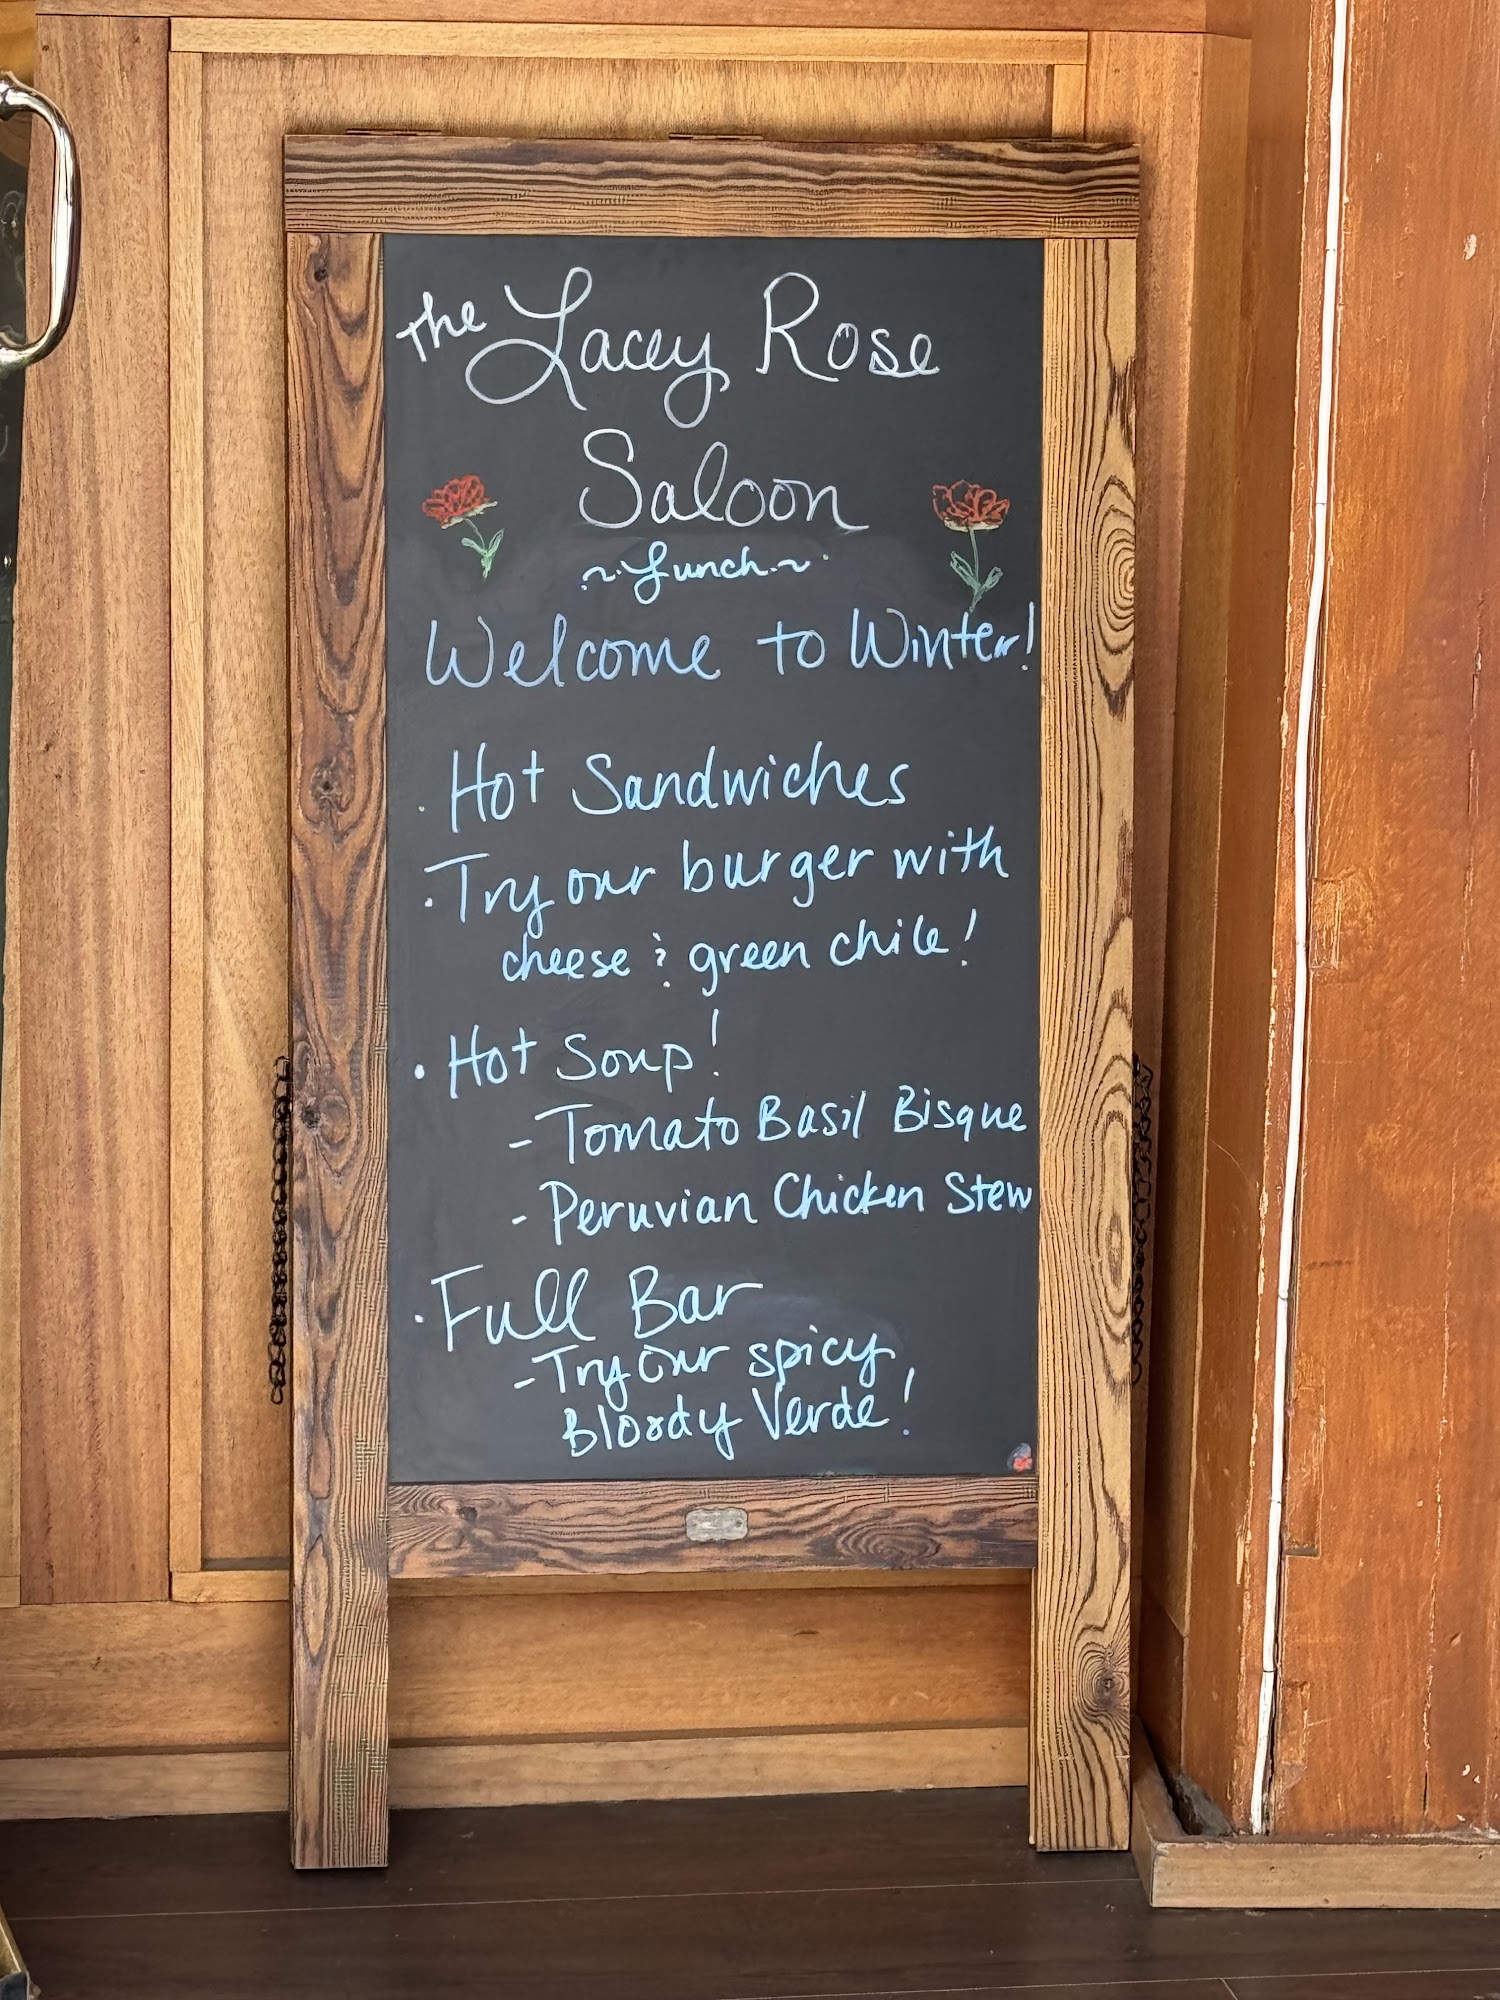 The Lacey Rose
Saloon
~ Lunch ~
Welcome to Winter!
· Hot Sandwiches
· Try our burger with
cheese & green chile!
· Hot Soup!
- Tomato Basil Bisque
- Peruvian Chicken Stew
· Full Bar
- Try our spicy
Bloody Verde!